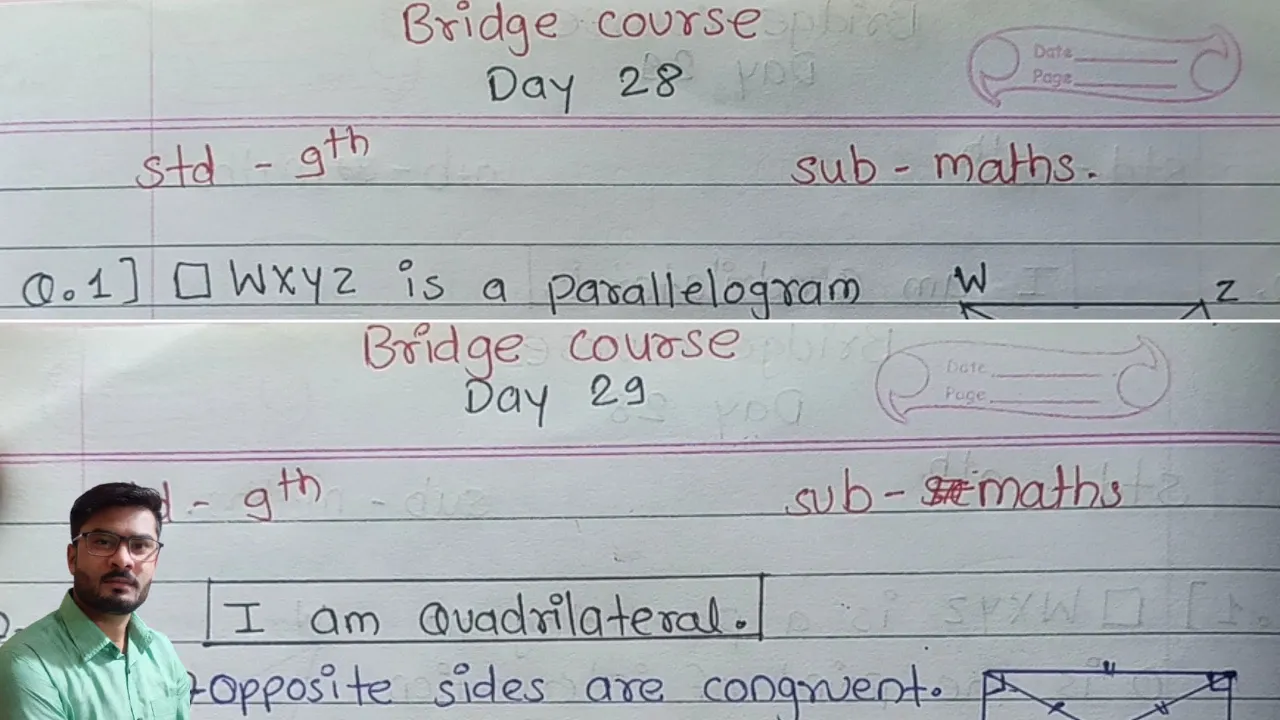 Bridge course
Day 28
Date
Page
std - 9th
sub - maths.
Q.1] □ WXYZ is a parallelogram
W
Z
Bridge course
Day 29
Date
Page
d - 9th
sub - maths
I am Quadrilateral.
opposite sides are congruent.